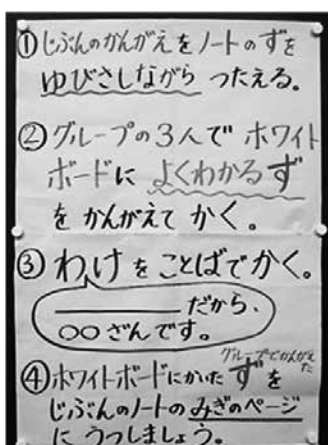 ①じぶんのかんがえをノートのずを
ゆびさしながら つたえる。
②グループの3人で ホワイト
ボードに よくわかるず
を かんがえて かく。
③わけを ことばでかく。
＿＿＿＿だから、
○○ざんです。
グループでかんがえた
④ホワイトボードにかいた ずを
じぶんのノートの みぎのページ
に うつしましょう。